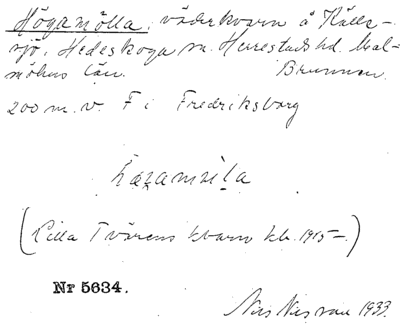 Högamölla, väderkvarn å Källe-
sjö, Hedeskoga sn. Herrestads hd. Mal-
möhus län. Brunnen.
200 m. v. F i Fredriksborg
(Lilla Tvärens kvarn kb. 1915–)
Nr 5634.
Nils Nilsson 1933.